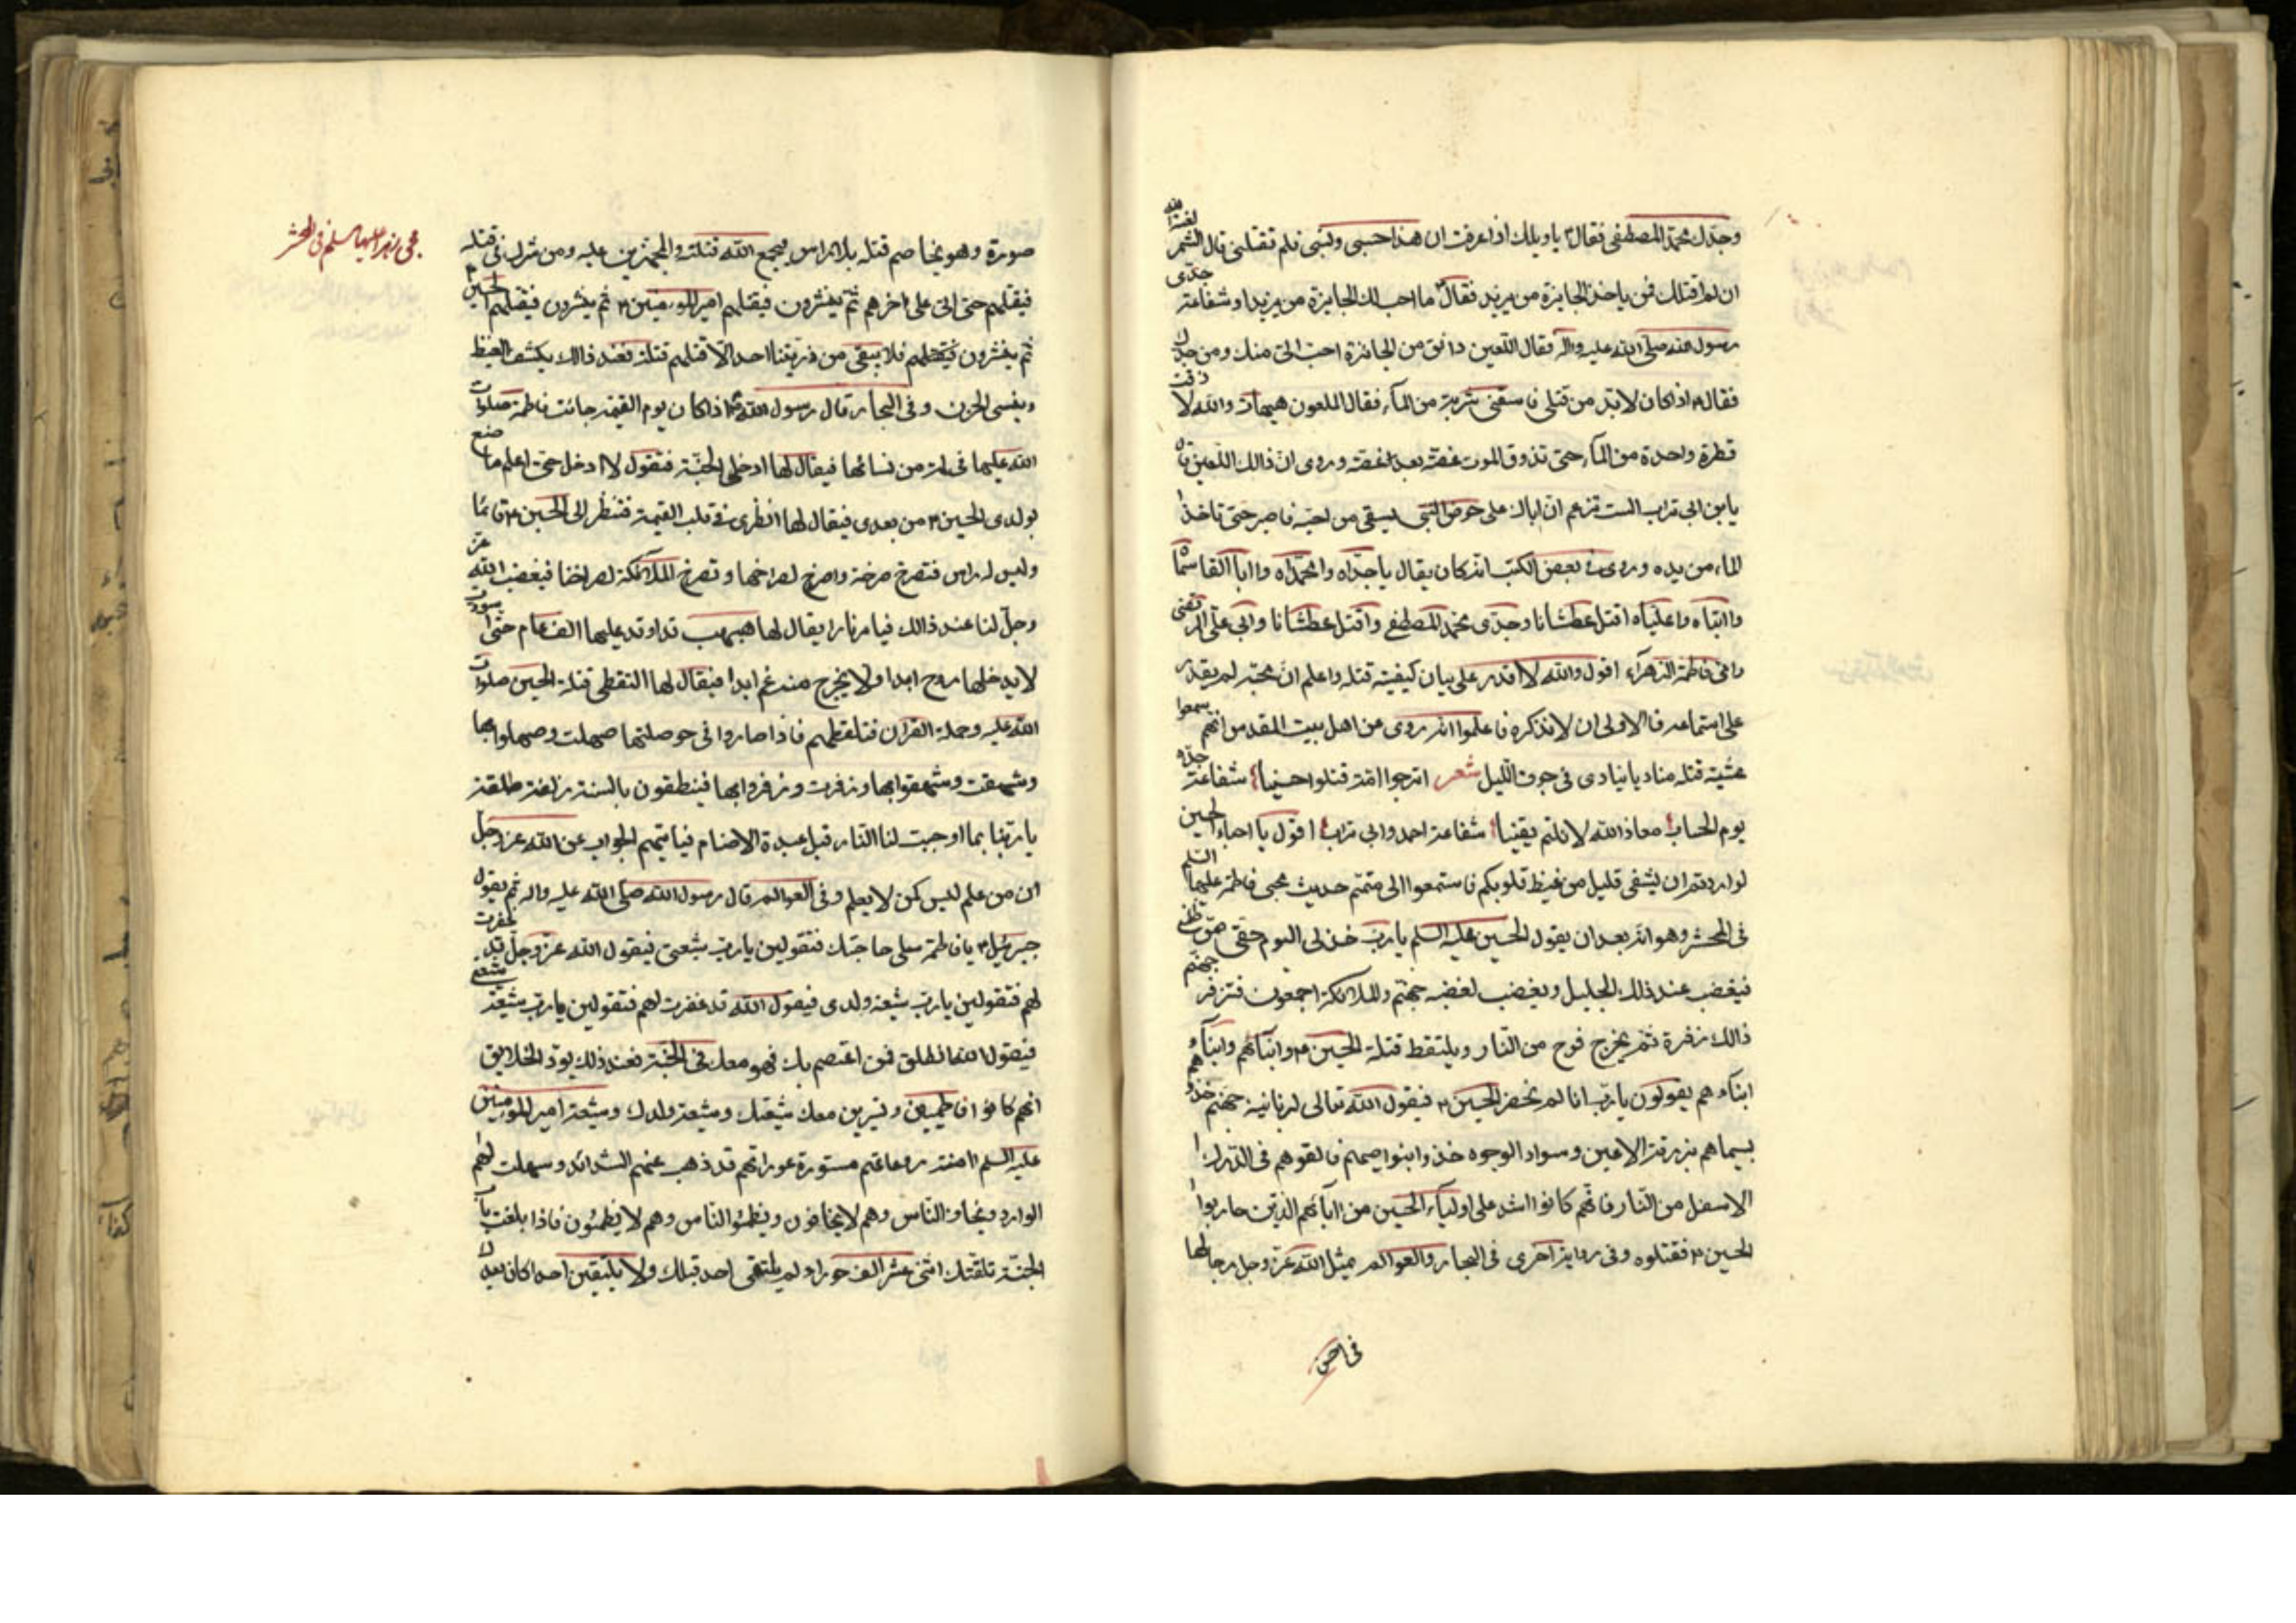 وجدك محمد المصطفى فقال ؑ يا ويلك اذا عرفت ان هذا حسبى ونسبى فلم تقتلنى قال الشمر لعنه الله
ان لم اقتلك فمن ياخذ الجايزة من يزيد فقال ؑ ما احب لك الجايزة من يزيد او شفاعة جدى
رسول الله صلى الله عليه واله فقال اللعين دانق من الجائزة احب الى منك ومن جدك
فقال ؑ اذا كان لابد من قتلى فاسقنى شربة من الماء فقال الملعون هيهات والله لا ذقت
قطرة واحدة من الماء حتى تذوق الموت غصة بعد غصة وروى ان ذالك اللعين قال
يابن ابى تراب الست تزعم ان اباك على حوض النبى يسقى من احبه فاصبر حتى تاخذ
الماء من يده وروى فى بعض الكتب انه كان يقال يا جداه وا محمداه وا ابا القاسماه
وا ابتاه وا علياه اقتل عطشانا وجدى محمد المصطفى واقتل عطشانا وابى على المرتضى
وامى فاطمة الزهراء اقول والله لا اقدر على بيان كيفية قتله واعلم ان محبه لم يقدر
على استماعه فالاولى ان لا نذكره فاعلموا انه روى عن اهل بيت المقدس انهم سمعوا
عشية قتله مناديا ينادى فى جوف الليل شعر اترجوا امة قتلوا حسينا شفاعة جده
يوم الحساب معاذ الله لا نلتم يقينا شفاعة احمد وابى تراب اقول يا احباء الحسين
لو اردتم ان يشفى قليل من غيظ قلوبكم فاستمعوا الى متمم حديث مجى فاطمة عليها السلم
فى المحشر وهو انه بعد ان يقول الحسين عليه السلم يا رب خذ لى اليوم حقى ممن ظلمنى
فيغضب عند ذلك الجليل ويغضب لغضبه جهنم والملائكة اجمعون فتزفر جهنم
ذالك زفرة ثم يخرج فوج من النار ويلتقط قتلة الحسين ؑ وابنائهم وابناء
ابناء هم يقولون يا رب انا لم نحضر الحسين ؑ فيقول الله تعالى لزبانية جهنم خذوهم
بسيماهم بزرقة الاعين وسواد الوجوه خذوا بنواصيهم فالقوهم فى الدرك
الاسفل من النار فانهم كانوا اشد على اولياء الحسين من ابائهم الذين حاربوا
الحسين ؑ فقتلوه وفى رواية اخرى فى البحار والعوالم يمثل الله عز وجل رجالها
فى احسن
صورة وهو يخاصم قتله بلا راس فيجمع الله قتلته والمجهزين عليه ومن شرك فى قتله
فيقتلهم حتى اتى على اخرهم ثم ينشرون فيقتلهم امير المومنين ؑ ثم ينشرون فيقتلهم الحسين ؑ
ثم ينشرون فيقتلهم فلا يبقى من ذريتنا احد الا قتلهم قتلة فعند ذالك يكشف الغيظ
وينسى الحزن وفى البحار قال رسول الله ؐ اذا كان يوم القيمة جائت فاطمة صلوات
الله عليها فى لمة من نسائها فيقال لها ادخلى الجنة فتقول لا ادخل حتى اعلم ما صنع
بولدى الحسين ؑ من بعدى فيقال لها انظرى فى قلب القيمة فتنظر الى الحسين ؑ قائما
وليس له راس فتصرخ صرخة واصرخ لصراخها وتصرخ الملائكة لصراخنا فيغضب الله عز
وجل لنا عند ذالك فيامر نارا يقال لها هبهب قد اوقد عليها الف عام حتى اسودت
لا يدخلها روح ابدا ولا يخرج منه غم ابدا فيقال لها التقطى قتلة الحسين صلوات
الله عليه وحملة القران فتلقطهم فاذا صاروا فى حوصلتها صهلت وصهلوا بها
وشهقت وشهقوا بها وزفرت وزفروا بها فينطقون بالسنة زلفة طلقة
يا ربنا بما اوجبت لنا النار قبل عبدة الاصنام فياتيهم الجواب عن الله عز وجل
ان من علم ليس كمن لا يعلم وفى العوالم قال رسول الله صلى الله عليه واله ثم يقول
جبرئيل ؑ يا فاطمة سلى حاجتك فتقولين يا رب شيعتى فيقول الله عز وجل قد غفرت
لهم فتقولين يا رب شيعة ولدى فيقول الله قد غفرت لهم فتقولين يا رب شيعة شيعتى
فيقول الله انطلقى فمن اعتصم بك فهو معك فى الجنة فعند ذلك يود الخلايق
انهم كانوا فاطميين وتسيرين معك شيعتك وشيعة ولدك وشيعة امير المومنين
عليه السلم امنة روعاتهم مستورة عوراتهم قد ذهب عنهم الشدائد وسهلت لهم
الموارد ويخاف الناس وهم لا يخافون ويظمئو الناس وهم لا يظمئون فاذا بلغت باب
الجنة تلقتك اثنى عشر الف حوراء لم يلتقى احد قبلك ولا يلتقين احدا كان بعدك
مجى زهرا عليها سلم فى المحشر